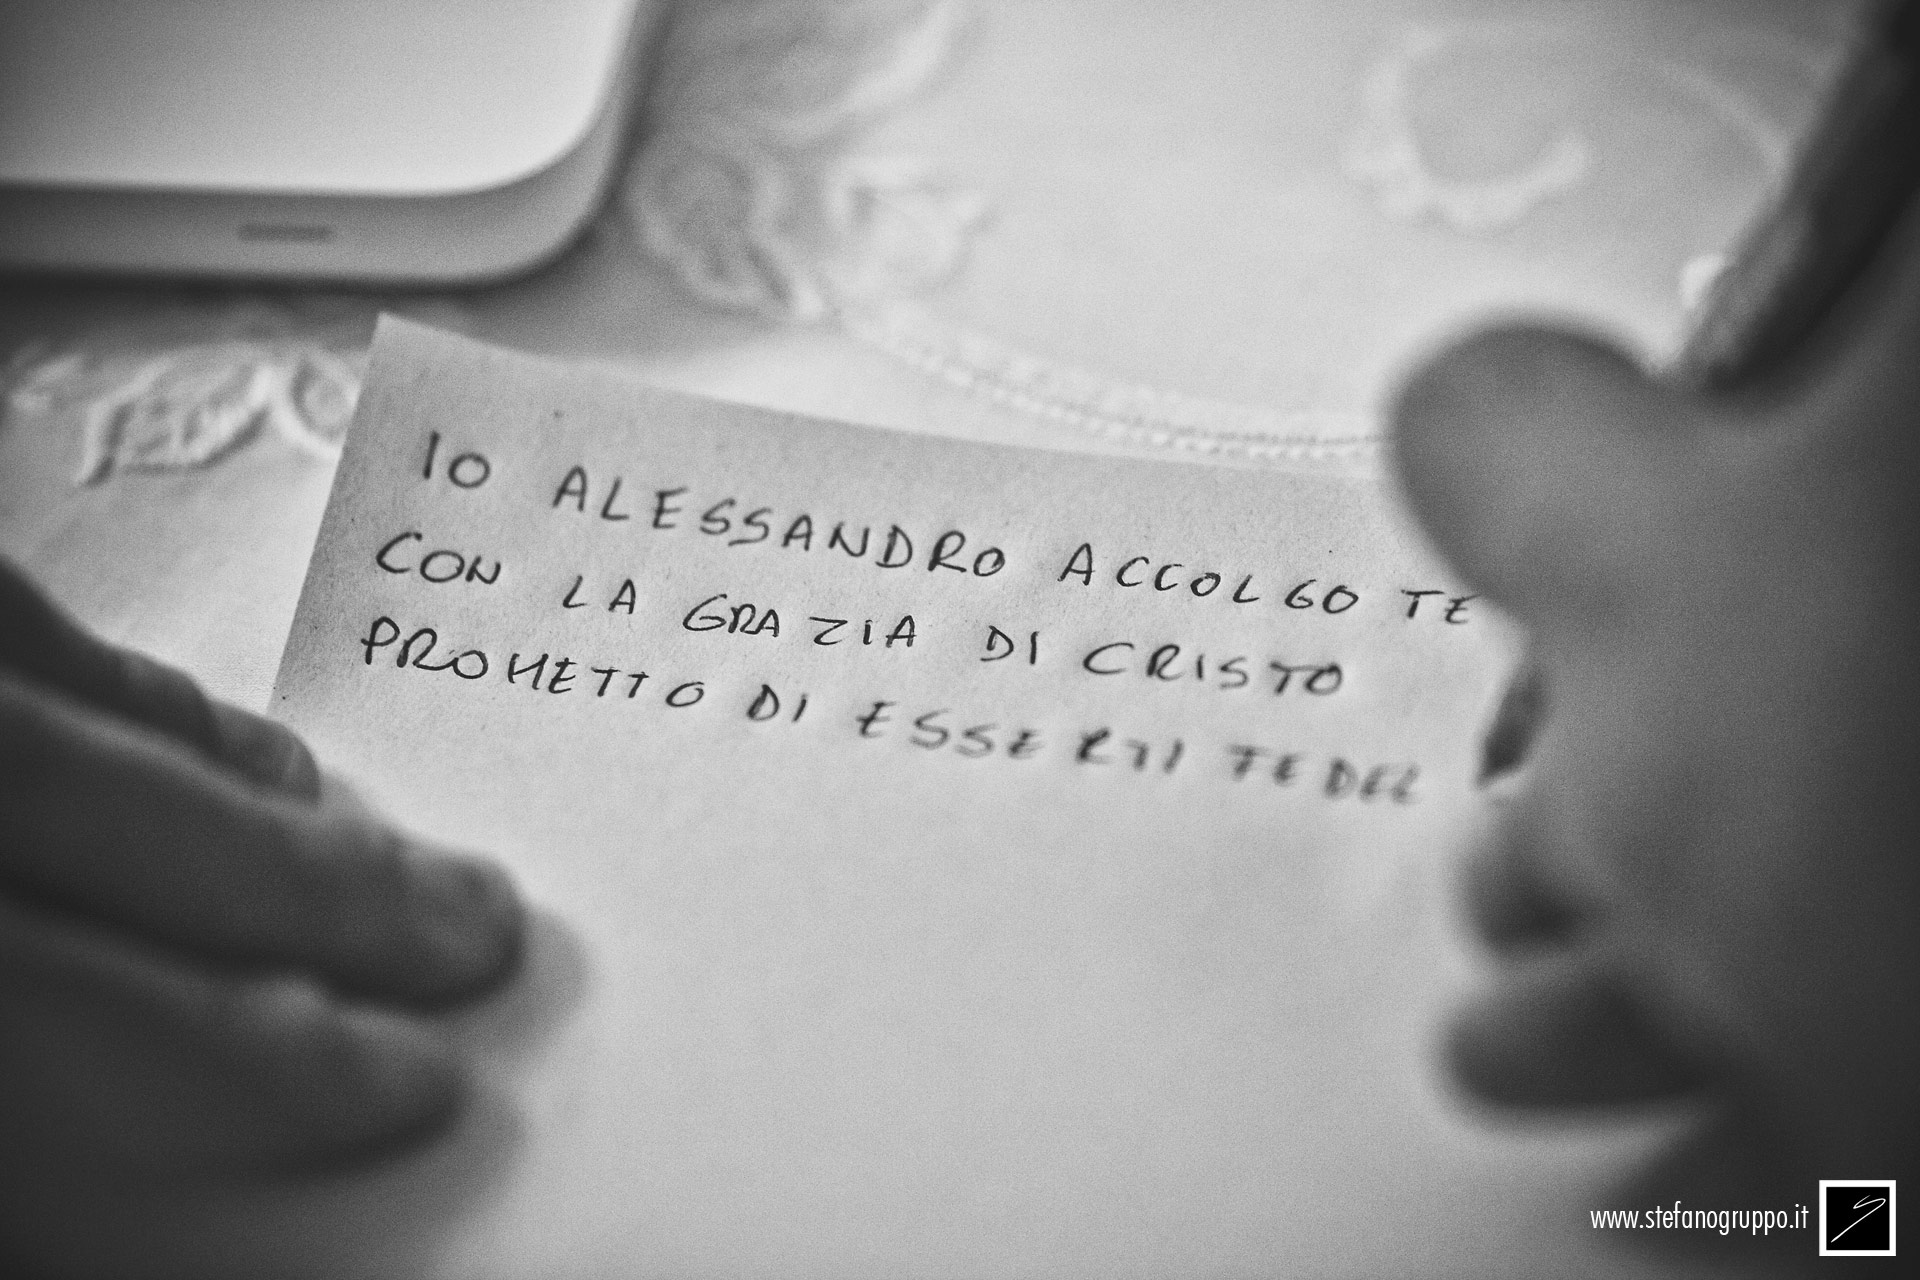 IO ALESSANDRO ACCOLGO TE
CON LA GRAZIA DI CRISTO
PROMETTO DI ESSERTI FEDEL
www.stefanogruppo.it